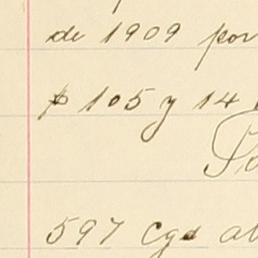 de 1909 por
$ 105 y 14
597 cgs